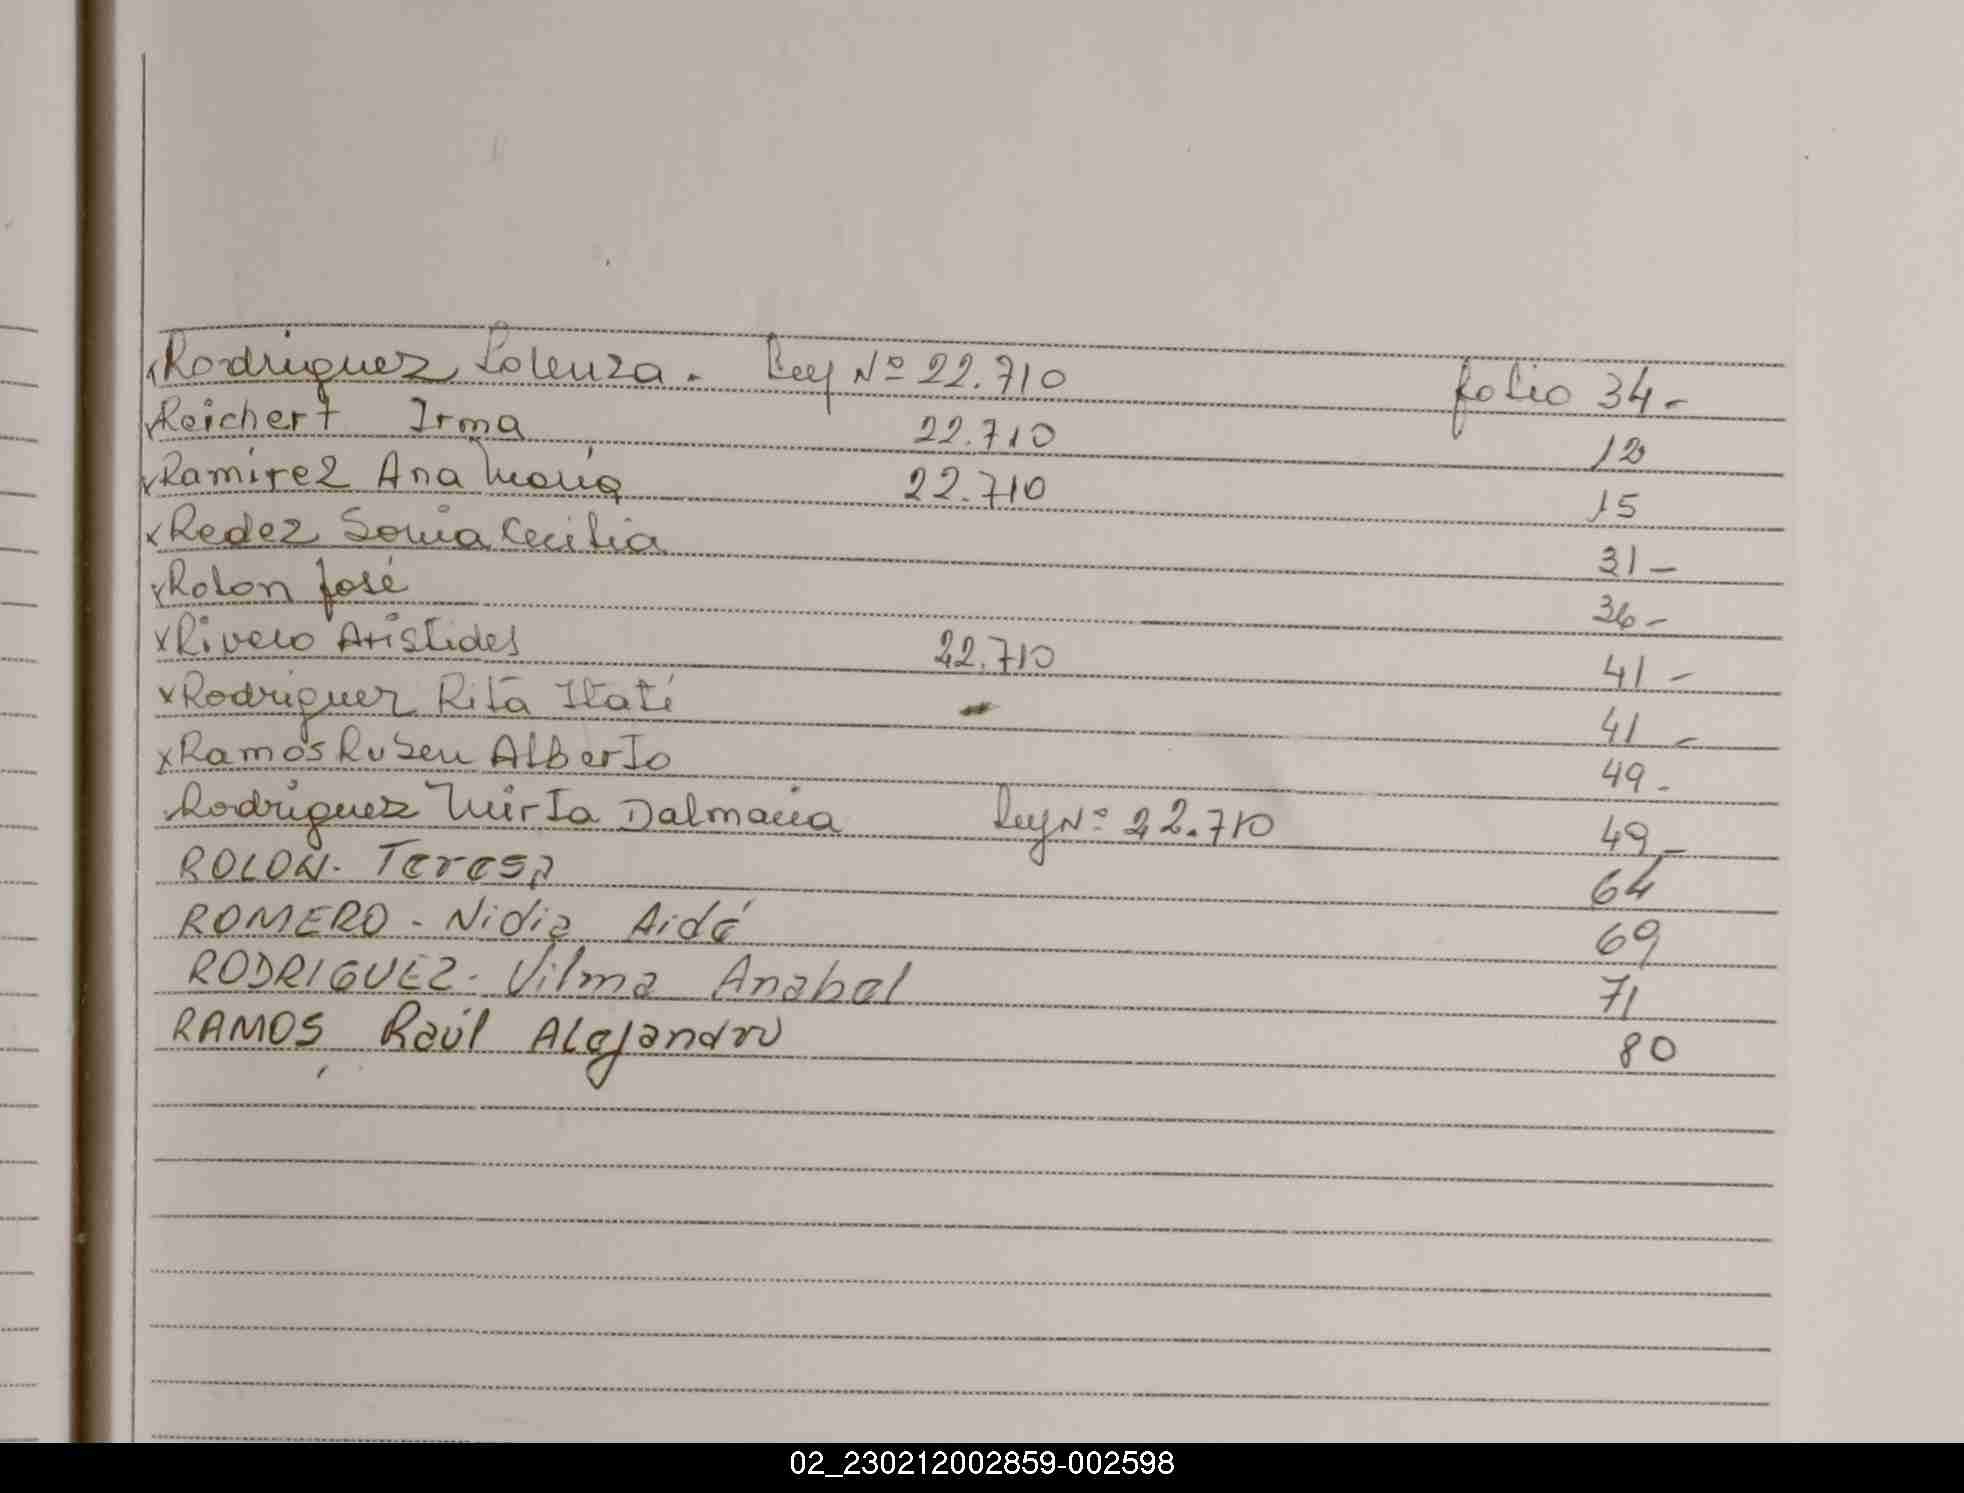 x Rodriguez Lorenza. Ley Nº 22.710 folio 34-
x Reichert Irma 22.710 12
x Ramirez Ana Maria 22.710 15
x Redez Sonia Cecilia 31-
x Rolon José 36-
x Rivero Aristides 22.710 41-
x Rodriguez Rita Itatí - 41-
x Ramos Ruben Alberto 49-
Rodriguez Mirta Dalmacia Ley Nº 22.710 49-
ROLON. Teresa 64
ROMERO - Nidia Aidé 69
RODRIGUEZ - Vilma Anabel 71
RAMOS Raúl Alejandro 80
02_230212002859-002598